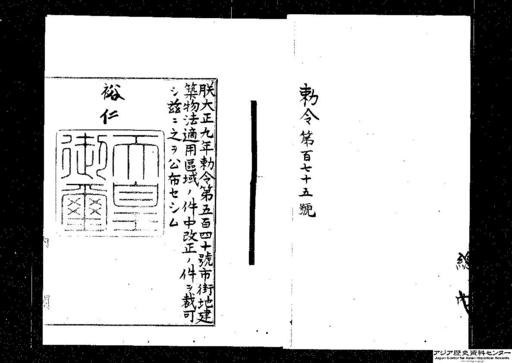 勅令第百七十五號
朕大正九年勅令第五百四十號市街地建
築物法適用區域ノ件中改正ノ件ヲ裁可
シ茲ニ之ヲ公布セシム
裕仁
天皇
御璽
アジア歴史資料センター
Japan Center for Asian Historical Records